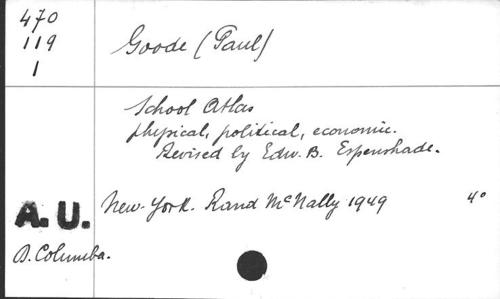 470
119
1
Goode (Paul)
School Atlas
physical, political, economic.
Revised by Edw. B. Espenshade.
New-York. Rand McNally 1949 4°
A.U.
D. Columba.